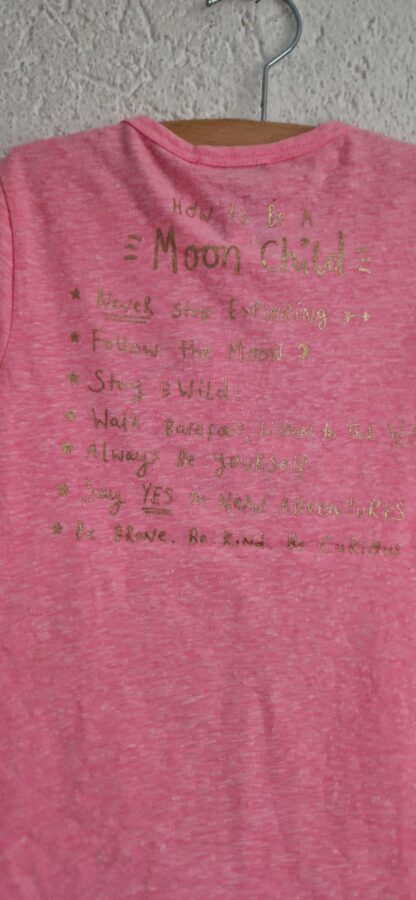 How to Be A
Moon Child
Never Stop Exploring
Follow the Moon
Stay Wild
Walk Barefoot, Listen to the
Always Be Yourself
Say YES to NEW ADVENTURES
Be Brave. Be Kind. Be Curious